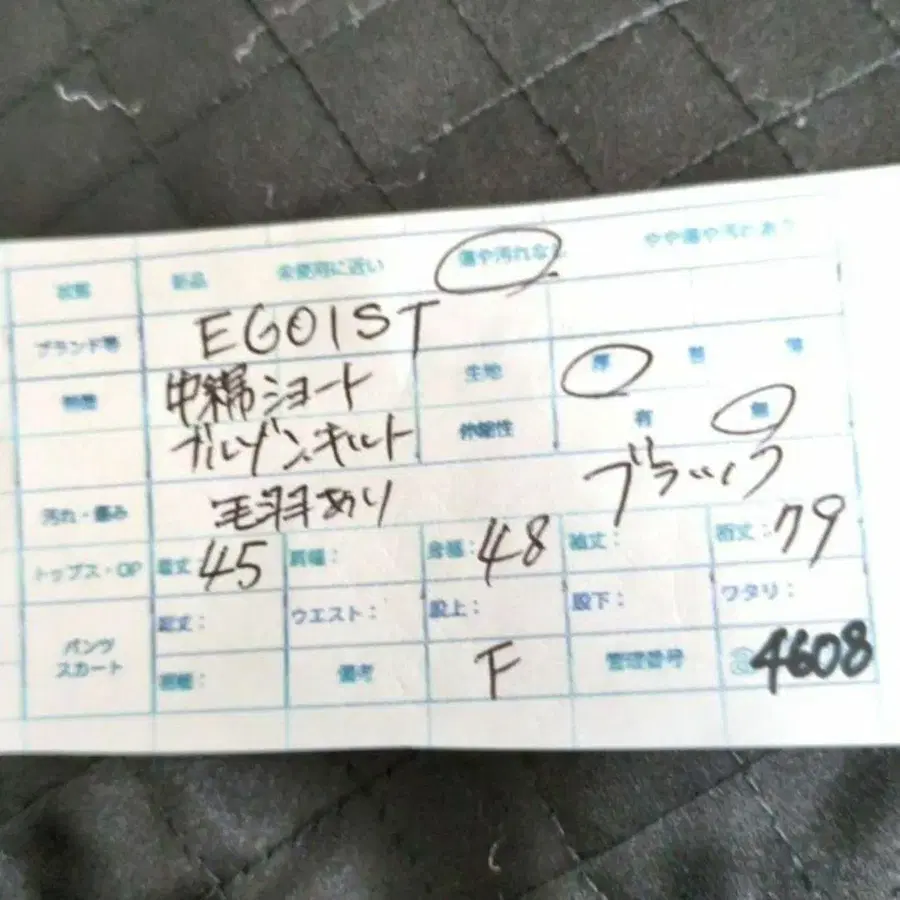 状態 新品 未使用に近い 傷や汚れなし やや傷や汚れあり
ブランド等 EGOIST
特徴 中綿ショート 生地 厚 普 薄
ブルゾン.キルト 伸縮性 有 無
汚れ・傷み 毛羽あり ブラック
トップス・OP 着丈 45 肩幅: 身幅: 48 袖丈: 裄丈: 79
パンツ スカート 総丈: ウエスト: 股上: 股下: ワタリ:
裾幅: 備考 F 管理番号 4608